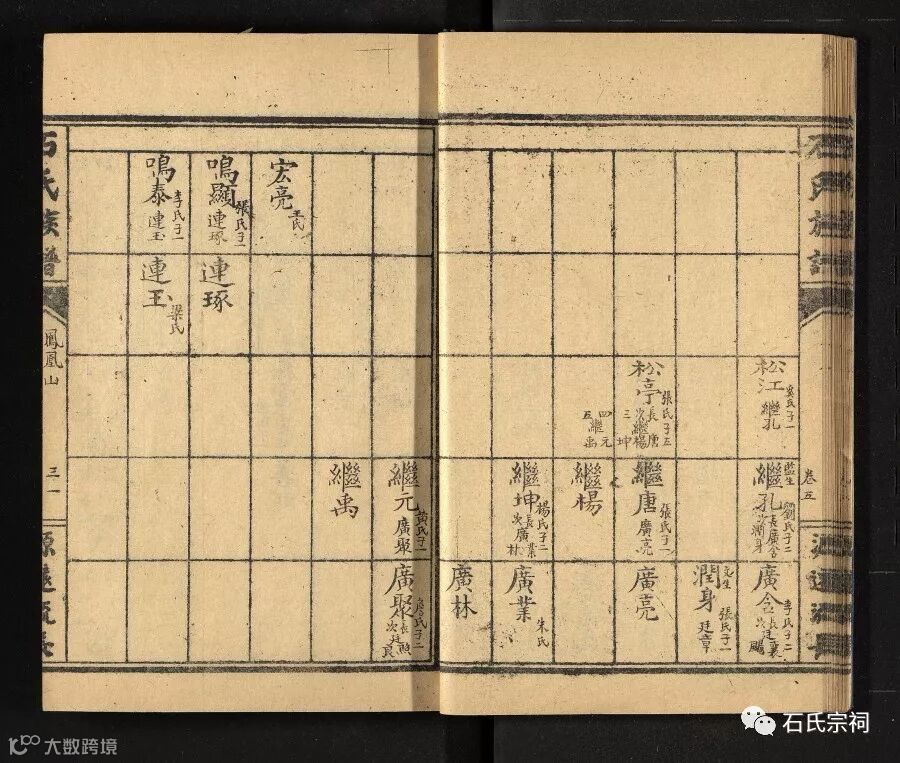 石氏族譜
卷五
松江 奚氏子一 繼孔
監生 繼孔 劉氏子二 長廣含 次潤身
廣含 李氏子二 長廷襄 次廷颺
潤身 張氏子一 廷章
松亭 張氏子五 長繼唐 次繼楊 三繼坤 四繼元 五繼禹
繼唐 張氏子一 廣亮
廣亮
繼楊
繼坤 楊氏子二 長廣業 次廣林
廣業 朱氏
廣林
繼元 黃氏子一 廣聚
廣聚
繼禹
宏亮 王氏
鳴顯 張氏子一 連琢
連琢
鳴泰 李氏子一 連玉
連玉 梁氏
石氏族譜
鳳凰山
三一
源遠流長
石氏宗祠
大数跨境